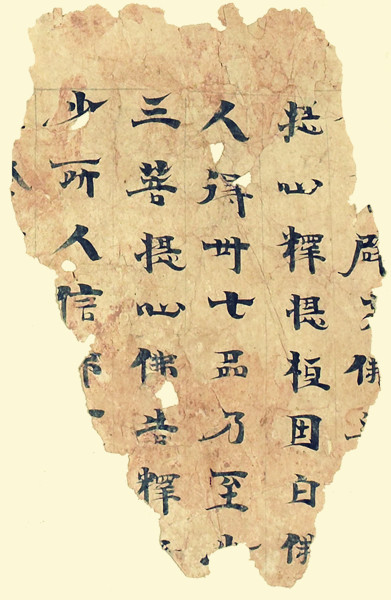 佛
提心釋提桓因白佛
人得卅七品乃至少
三菩提心佛告釋
少所人信佛